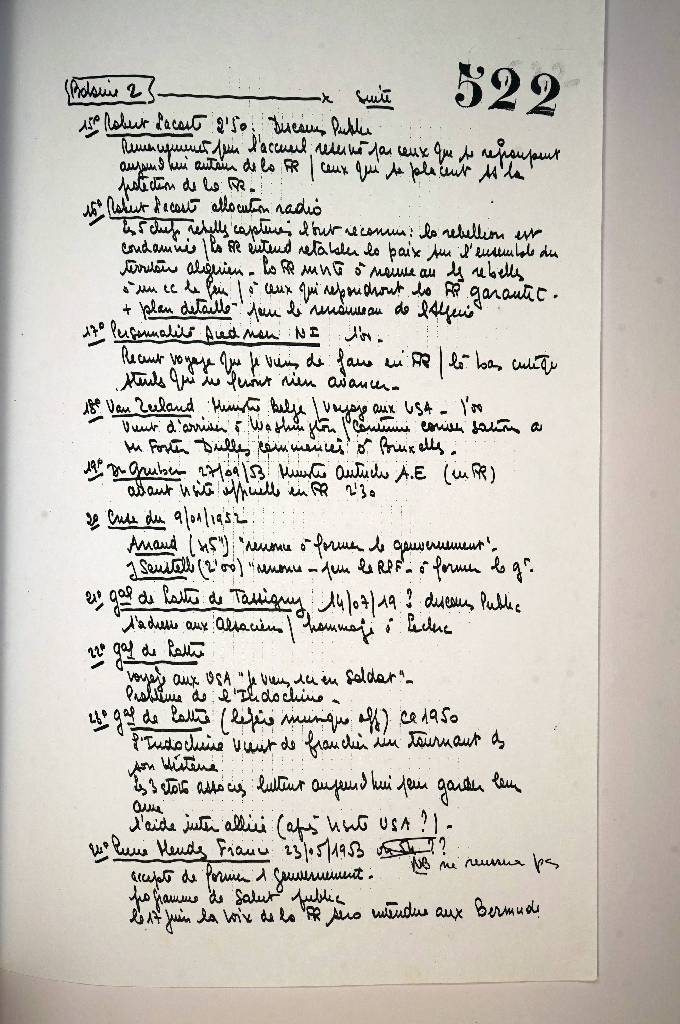 Bobine 2 x suite
522
15° Robert Lacoste 2'50: Discours Public
Remerciement pour l'accueil réservé par ceux qui se regroupent
aujourd'hui autour de la FR / ceux qui se placent ss la
protection de la FR.
16° Robert Lacoste allocution radio
Les 5 chefs rebelles capturés l'ont reconnu: la rébellion est
condamnée / la FR entend rétablir la paix sur l'ensemble du
territoire algérien. La FR invite à nouveau les rebelles
à un cc le feu / à ceux qui repondront la FR garantit.
+ plan détaillé pour le renouveau de l'Algérie
17° Personnalité Pied noir NI 1'00.
Récent voyage que je viens de faire en FR / là bas
stériles qui ne feront rien avancer.
18° Van Zeeland Ministre Belge / Voyage aux USA - 1'00
Vient d'arriver à Washington / continue conversations a
Mr Foster Dulles commencées à Bruxelles.
19° Dr Gruber 27/09/53 Ministre Autriche A.E (en FR)
avant visite officielle en FR 2'30
20 Crise du 9/01/1952
(45") "renonce à former le gouvernement".
J Soustelle (2'00) "renonce - pour le RPF - à former le gt.
21° gal de Lattre de Tassigny 14/07/19 ? discours Public
s'adresse aux Alsaciens / hommage à Leclerc
22° gal de Lattre
voyage aux USA "Je viens ici en Soldat".
Problème de l'Indochine.
23° gal de Lattre (légère musique off) ca 1950
L'Indochine vient de franchir un tournant ds
son Histoire
Les 3 états associés luttent aujourd'hui pour garder leur
âme
l'aide inter alliée (après visite USA ?).
24° Pierre Mendes France 23/05/1953 ??
NB ne réussira pas
accepte de former 1 Gouvernement.
programme de Salut public
le 17 juin la voix de la FR sera entendue aux Bermudes